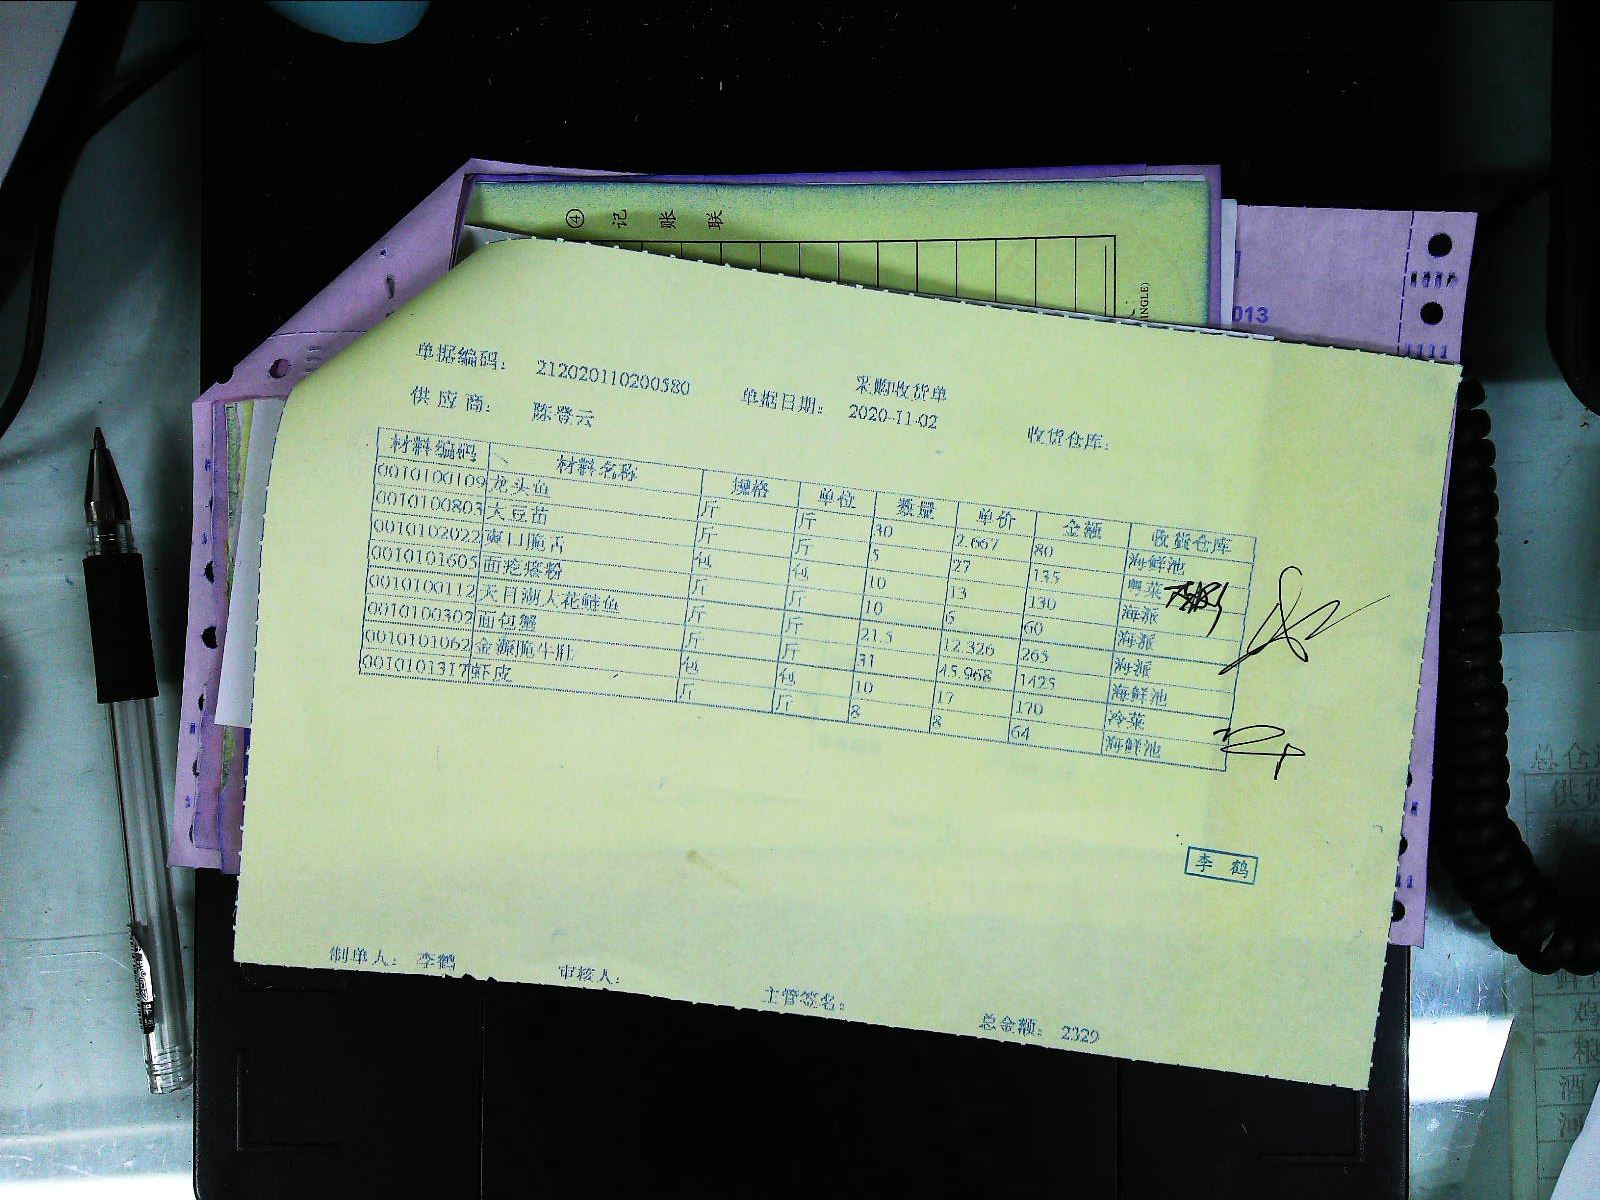 ④ 记 账 联
013
采购收货单
单据编码： 212020110200580 单据日期： 2020-11-02 收货仓库：
供 应 商： 陈登云
材料编码 材料名称 规格 单位 数量 单价 金额 收货仓库
0010100109 龙头鱼 斤 斤 30 2.667 80 海鲜池
0010100803 大豆苗 斤 斤 5 27 135 粤菜
0010102022 爽口脆舌 包 包 10 13 130 海派
0010101605 面疙瘩粉 斤 斤 10 6 60 海派
0010100112 天目湖大花鲢鱼 斤 斤 21.5 12.326 265 海派
0010100302 面包蟹 斤 斤 31 45.968 1425 海鲜池
0010101062 金源顺牛肚 包 包 10 17 170 冷菜
0010101317 虾皮 斤 斤 8 8 64 海鲜池
李 鹤
制单人： 李鹤 审核人： 主管签名： 总金额： 2329